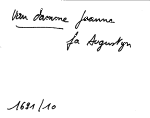 Van Damme Joanne
fa Augustyn
1681/10